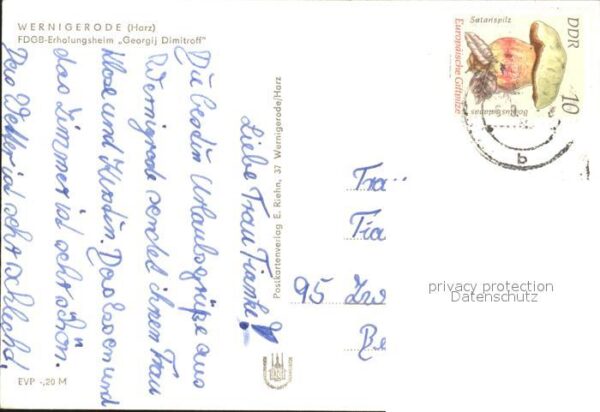 WERNIGERODE (Harz)
FDGB-Erholungsheim „Georgij Dimitroff"
Liebe Frau Tianke!
Die besten Urlaubsgrüße aus
Wernigrode sendet ihnen Frau
Klose und Kirstin. Das Essen und
das Zimmer ist sehr schön.
Das Wetter ist sehr schlecht.
EVP -,20 M
Postkartenverlag E. Riehn, 37 Wernigerode/Harz
Satanspilz
DDR
Europäische Giftpilze
Boletus satanas
10
b
Fra
Tia
95 Zw
Be
privacy protection
Datenschutz